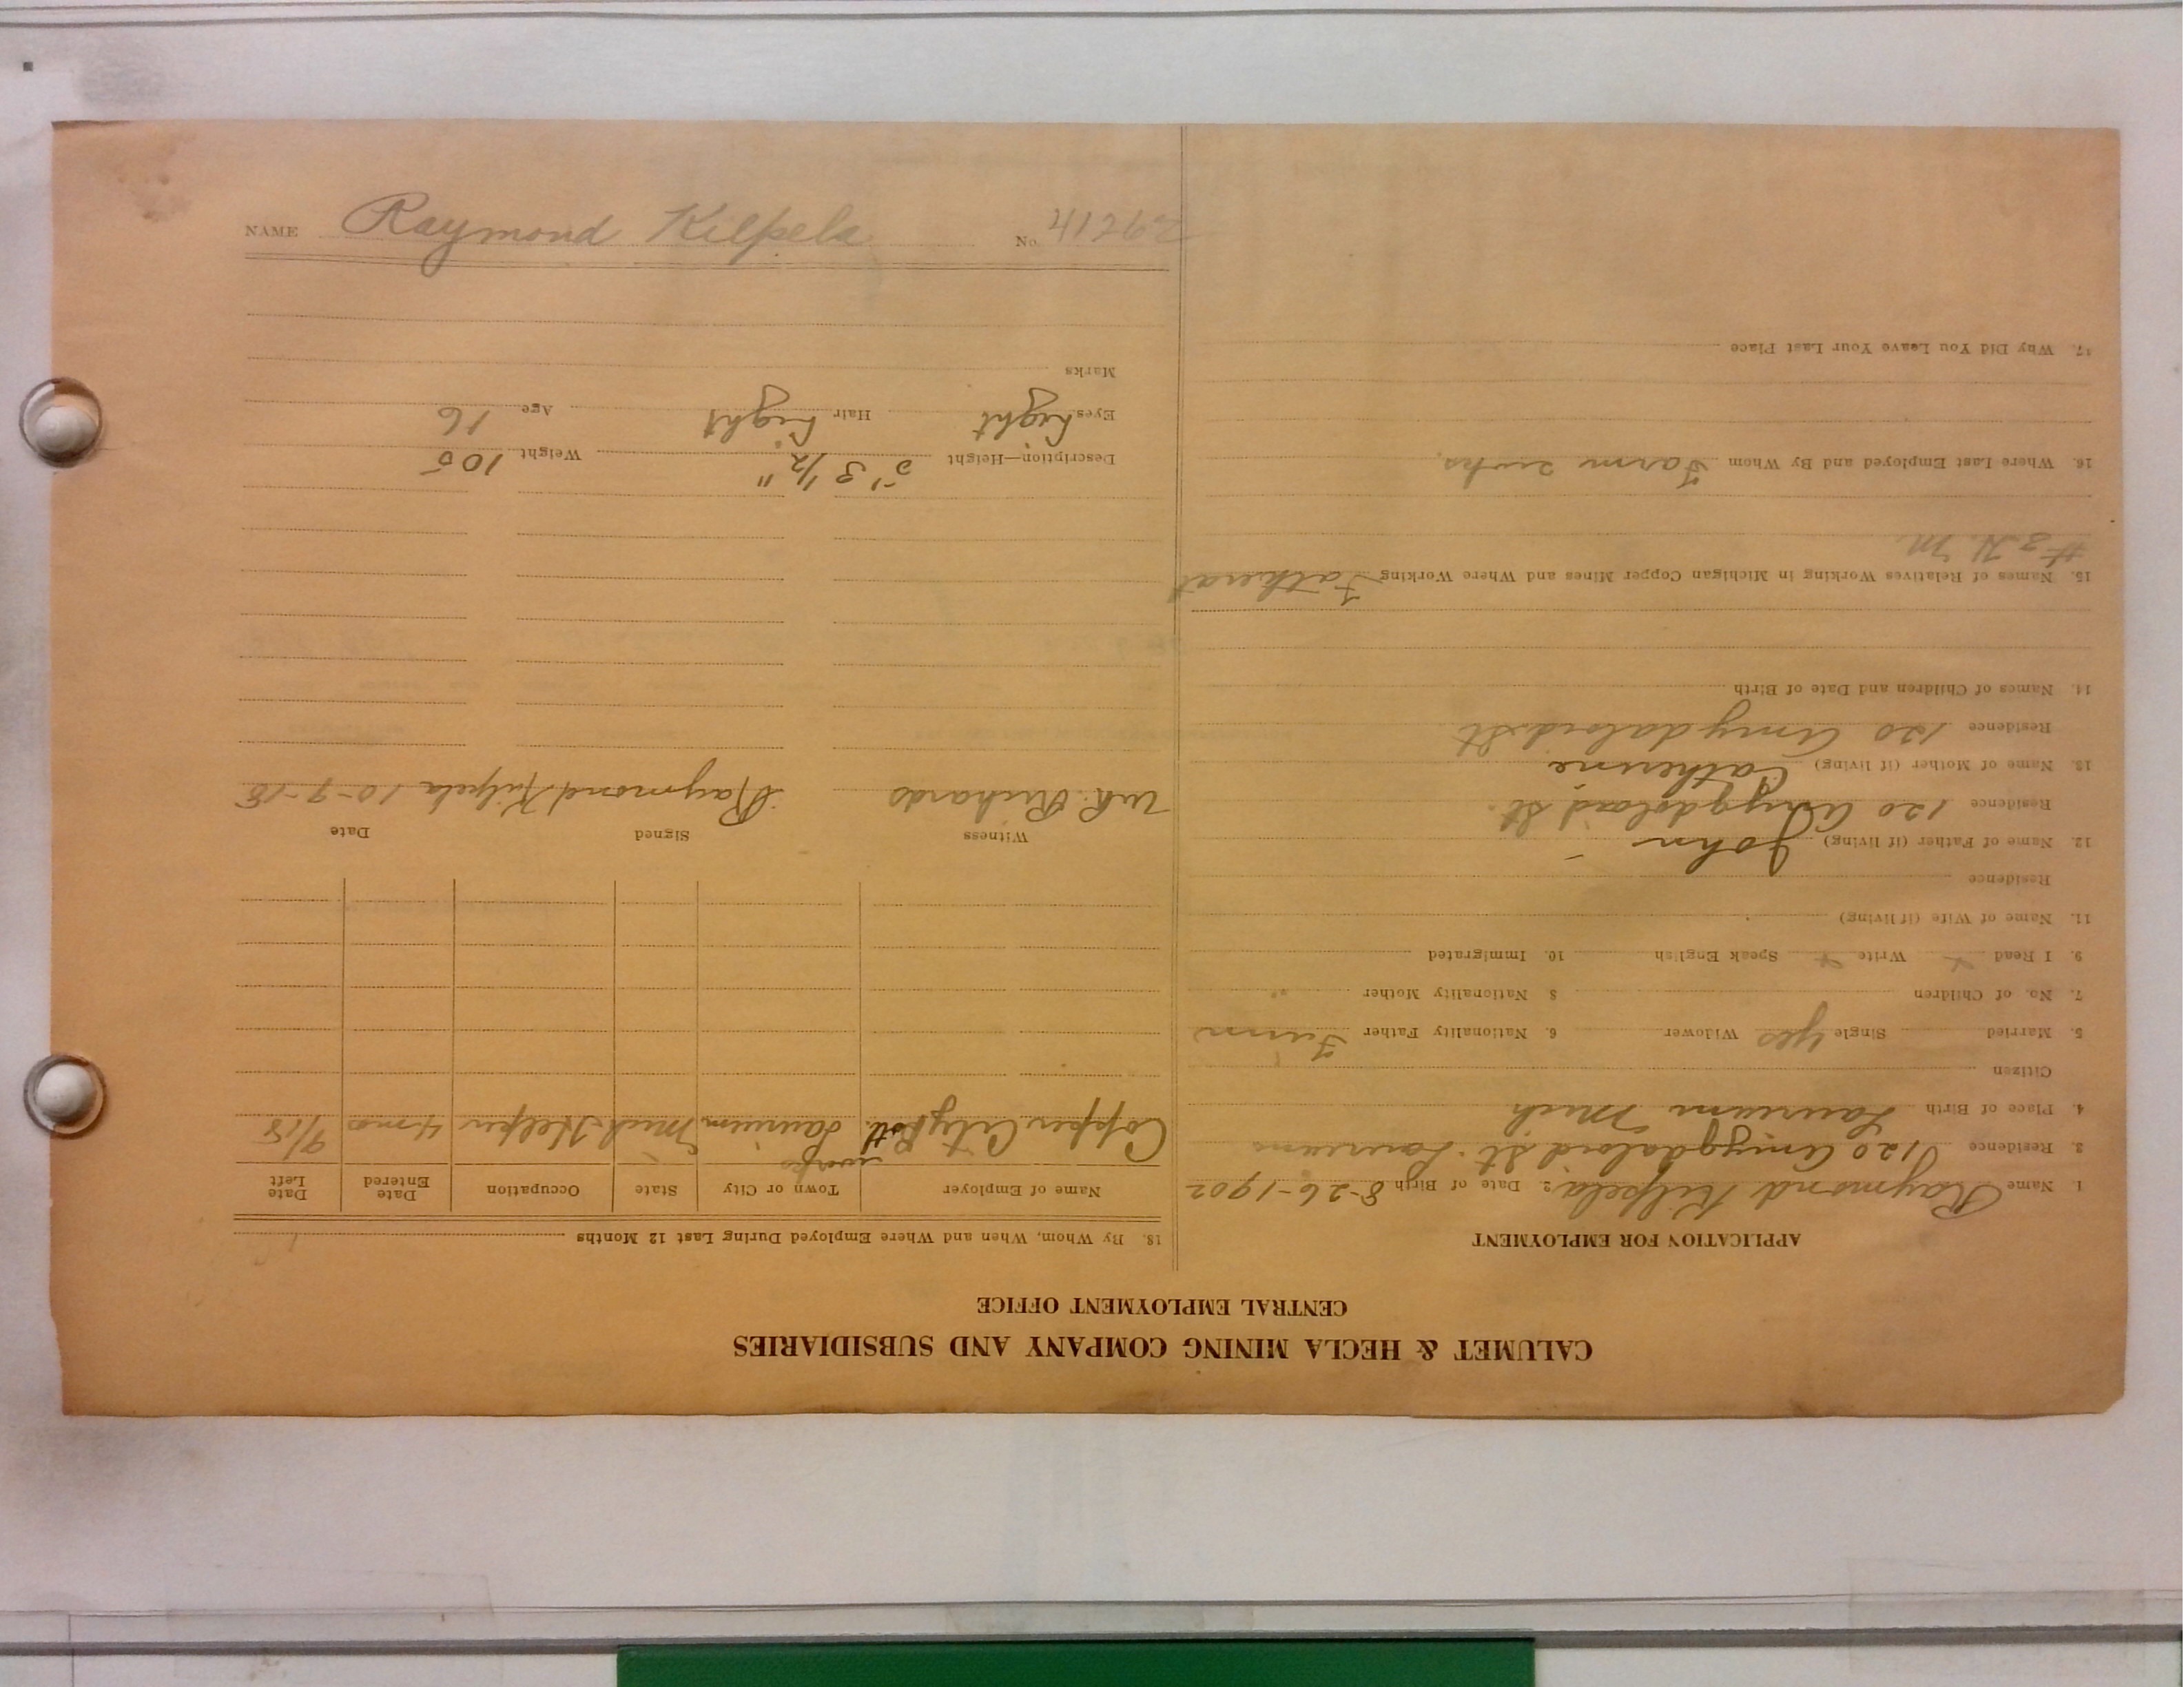 NAME Raymond Kilpela No. 41262
CALUMET & HECLA MINING COMPANY AND SUBSIDIARIES
CENTRAL EMPLOYMENT OFFICE
APPLICATION FOR EMPLOYMENT
1. Name Raymond Kilpela 2. Date of Birth 8-26-1902
3. Residence 120 Amygdaloid St. Laurium
4. Place of Birth Laurium Mich
Citizen
5. Married Single Yes Widower 6. Nationality Father Finn
7. No. of Children 8 Nationality Mother "
9. I Read Write Speak English 10. Immigrated
11. Name of Wife (if living)
Residence
12. Name of Father (if living) John
Residence 120 Amygdaloid St.
13. Name of Mother (if living) Catherine
Residence 120 Amygdaloid St
14. Names of Children and Date of Birth
15. Names of Relatives Working in Michigan Copper Mines and Where Working Father at
16. Where Last Employed and By Whom Farm 2 wks.
17. Why Did You Leave Your Last Place
18. By Whom, When and Where Employed During Last 12 Months
Name of Employer Town or City State Occupation Date Entered Date Left
Copper City Bott. works Laurium Mich Helper 4 mos 9/18
Witness Signed Date
W.R. Richards Raymond Kilpela 10-7-18
Description—Height 5' 3 1/2" Weight 105
Eyes Light Hair Light Age 16
Marks